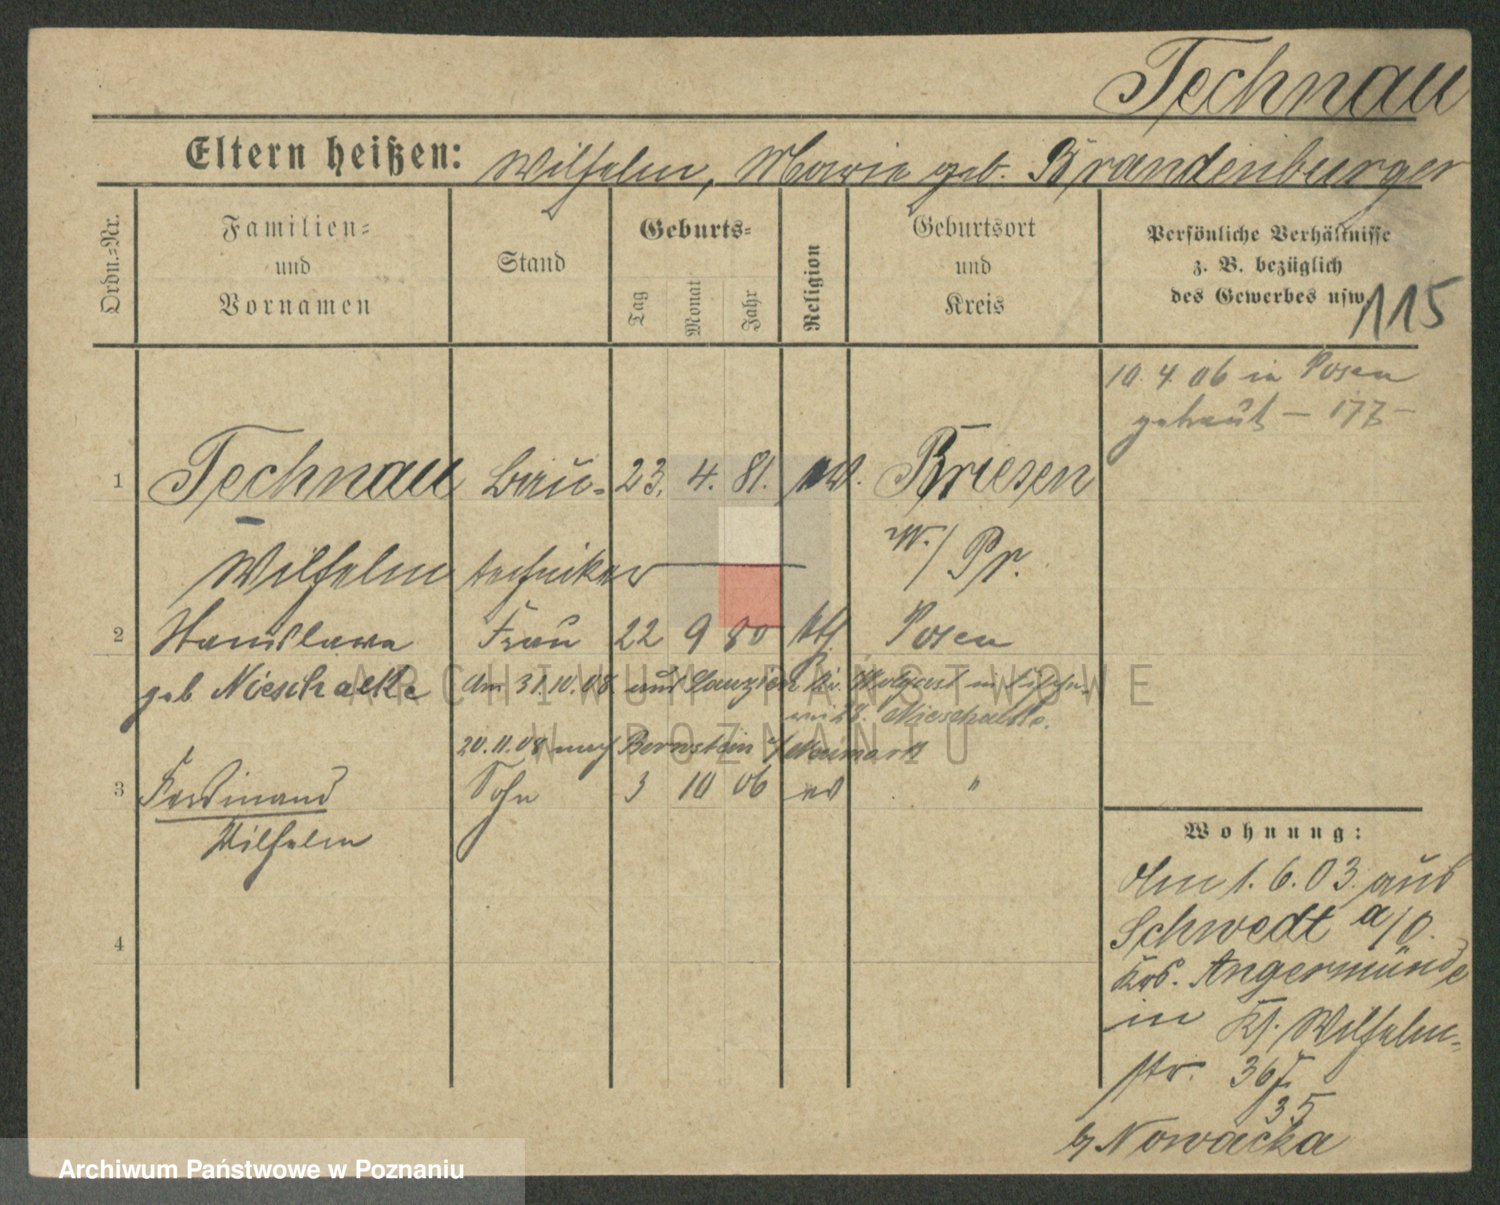 Technau
Eltern heißen: Wilhelm, Marie geb. Brandenburger
Ordn.=Nr.
Familien=
und
Vornamen
Stand
Geburts=
Tag
Monat
Jahr
Religion
Geburtsort
und
Kreis
Persönliche Verhältnisse
z. B. bezüglich
des Gewerbes usw.
115
10. 4. 06 in Posen
getraut – 177 –
1 Technau Bau- 23. 4. 81. ev. Briesen
Wilhelm techniker W./Pr.
2 Stanislawa Frau 22 9 80 kth Posen
geb Nieschalke Am 31.10.08. aus
20.11.08 nach Bernstein Neumark
3 Ferdinand Sohn 3 10 06 ev "
Wilhelm
4
Wohnung:
Am 1. 6. 03. aus
Schwedt a/O.
Krs. Angermünde
in Wilhelm-
str. 36
35
Nowacka
ARCHIWUM PAŃSTWOWE
W POZNANIU
Archiwum Państwowe w Poznaniu